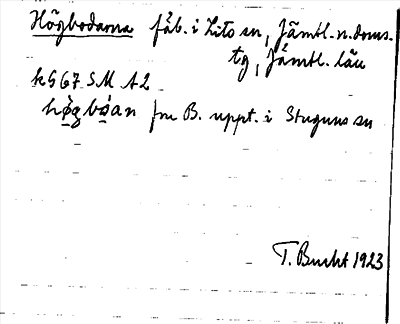 Högbodarna fäb. i Lits sn, Jämtl. n. doms.
tg, Jämtl. län
k 967 SM A2
høgbøan fm B. uppt. i Stuguns sn
T. Bucht 1923